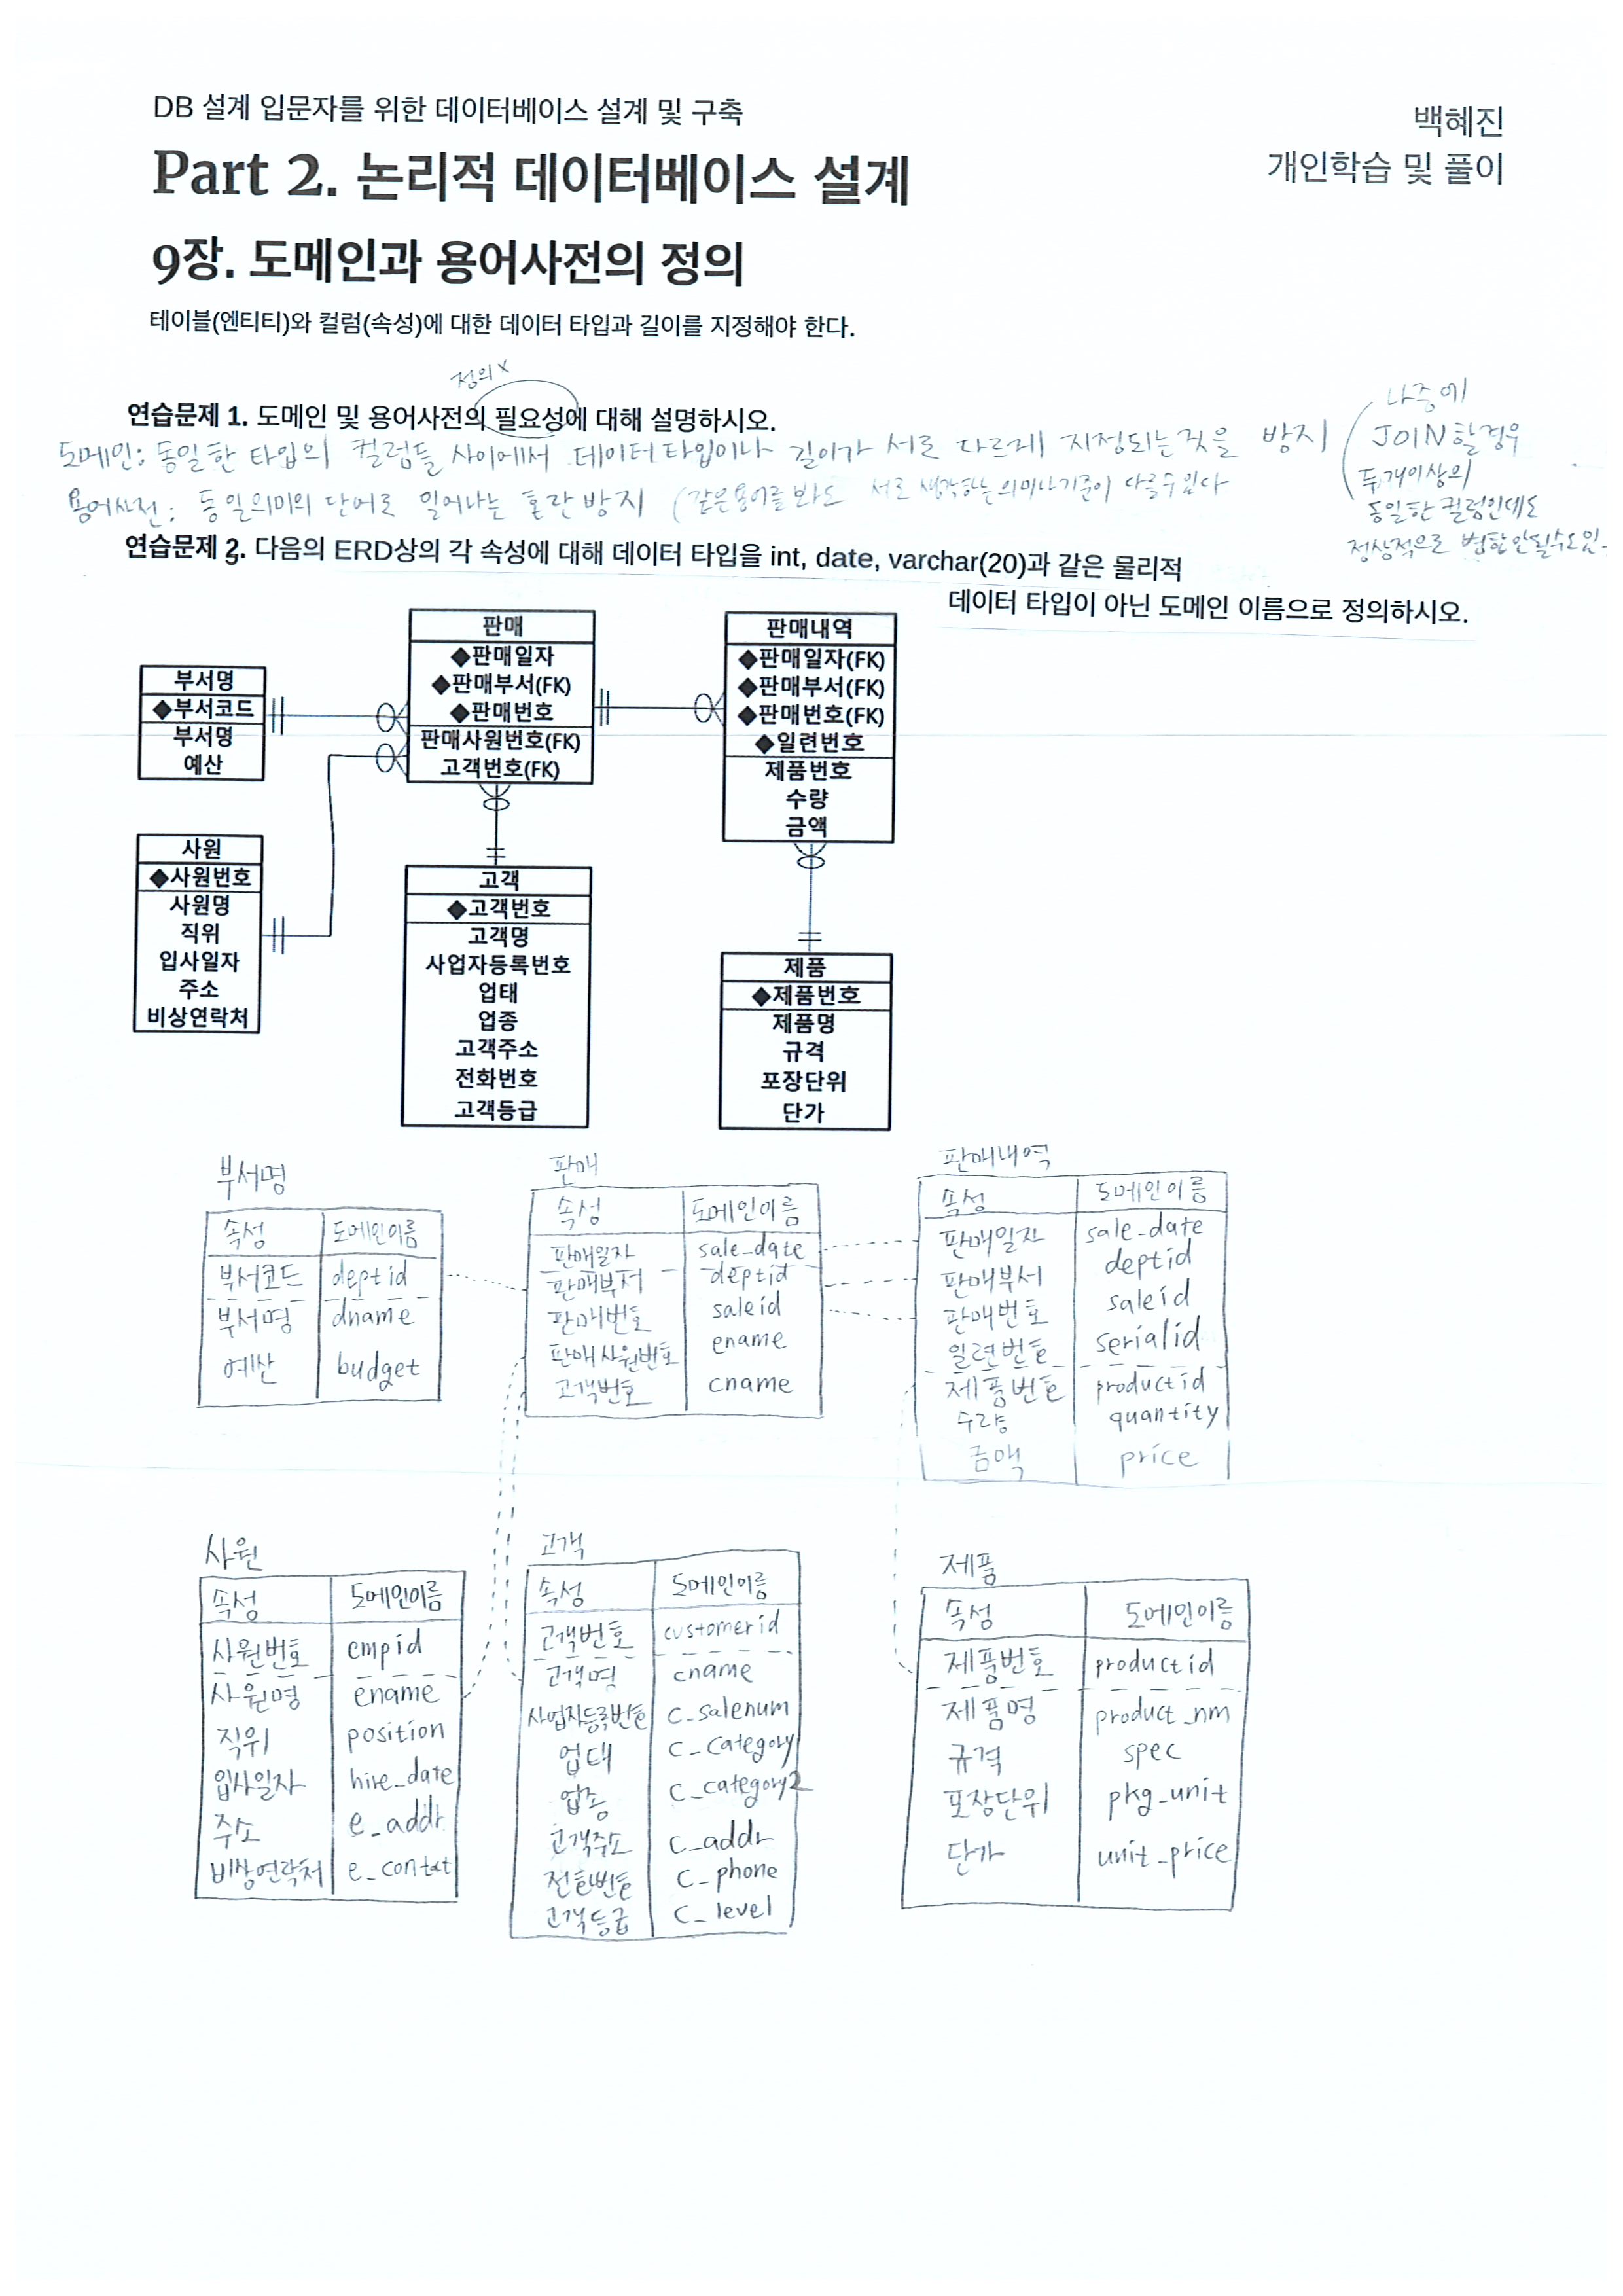 DB 설계 입문자를 위한 데이터베이스 설계 및 구축
백혜진
개인학습 및 풀이
Part 2. 논리적 데이터베이스 설계
9장. 도메인과 용어사전의 정의
테이블(엔티티)와 컬럼(속성)에 대한 데이터 타입과 길이를 지정해야 한다.
정의x
연습문제 1. 도메인 및 용어사전의 필요성에 대해 설명하시오.
도메인: 동일한 타입의 컬럼들 사이에서 데이터타입이나 길이가 서로 다르게 지정되는 것을 방지
나중에
JOIN할경우
두개이상의
동일한 컬럼인데도
정상적으로 병합안될수도있
용어사전: 동일의미의 단어로 일어나는 혼란방지 (같은용어를 봐도 서로 생각하는의미나기준이 다를수있다
연습문제 2. 다음의 ERD상의 각 속성에 대해 데이터 타입을 int, date, varchar(20)과 같은 물리적
데이터 타입이 아닌 도메인 이름으로 정의하시오.
부서명
◆부서코드
부서명
예산
판매
◆판매일자
◆판매부서(FK)
◆판매번호
판매사원번호(FK)
고객번호(FK)
판매내역
◆판매일자(FK)
◆판매부서(FK)
◆판매번호(FK)
◆일련번호
제품번호
수량
금액
사원
◆사원번호
사원명
직위
입사일자
주소
비상연락처
고객
◆고객번호
고객명
사업자등록번호
업태
업종
고객주소
전화번호
고객등급
제품
◆제품번호
제품명
규격
포장단위
단가
부서명
속성 도메인이름
부서코드 deptid
부서명 dname
예산 budget
판매
속성 도메인이름
판매일자 sale_date
판매부서 deptid
판매번호 saleid
판매사원번호 ename
고객번호 cname
판매내역
속성 도메인이름
판매일자 sale_date
판매부서 deptid
판매번호 saleid
일련번호 serialid
제품번호 productid
수량 quantity
금액 price
사원
속성 도메인이름
사원번호 empid
사원명 ename
직위 position
입사일자 hire_date
주소 e_addr
비상연락처 e_contxt
고객
속성 도메인이름
고객번호 customerid
고객명 cname
사업자등록번호 c_salenum
업태 c_category
업종 c_category2
고객주소 c_addr
전화번호 c_phone
고객등급 c_level
제품
속성 도메인이름
제품번호 productid
제품명 product_nm
규격 spec
포장단위 pkg_unit
단가 unit_price